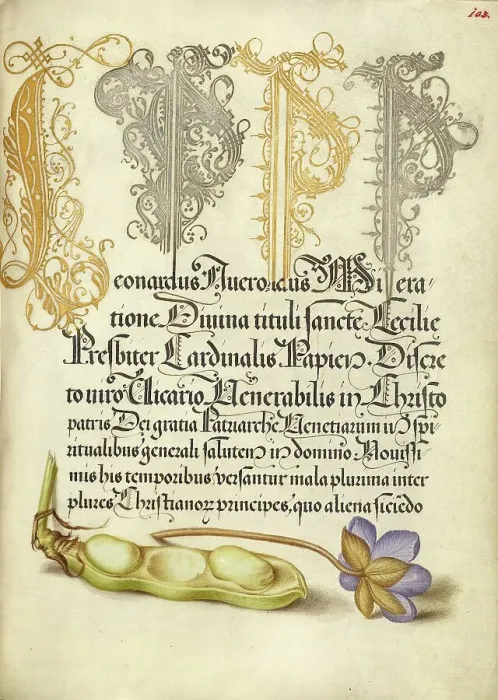 103.
L P P P
eonardus Nucronius Misera-
tione Divina tituli sancte Cecilie
Presbiter Cardinalis Papien. Discre
to viro Vicario Venerabilis in Christo
patris Dei gratia Patriarche Venetiarum in spi-
ritualibus generali salutem in domino. Novissi
mis his temporibus versantur mala plurima inter
plures Christianoꝝ principes, quo aliena siciēdo